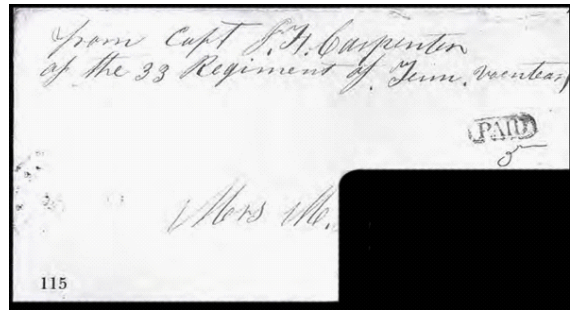 from Capt J.F. Carpenter
of the 33 Regiment of Tenn. voenteas
PAID
5
Mrs M.
115